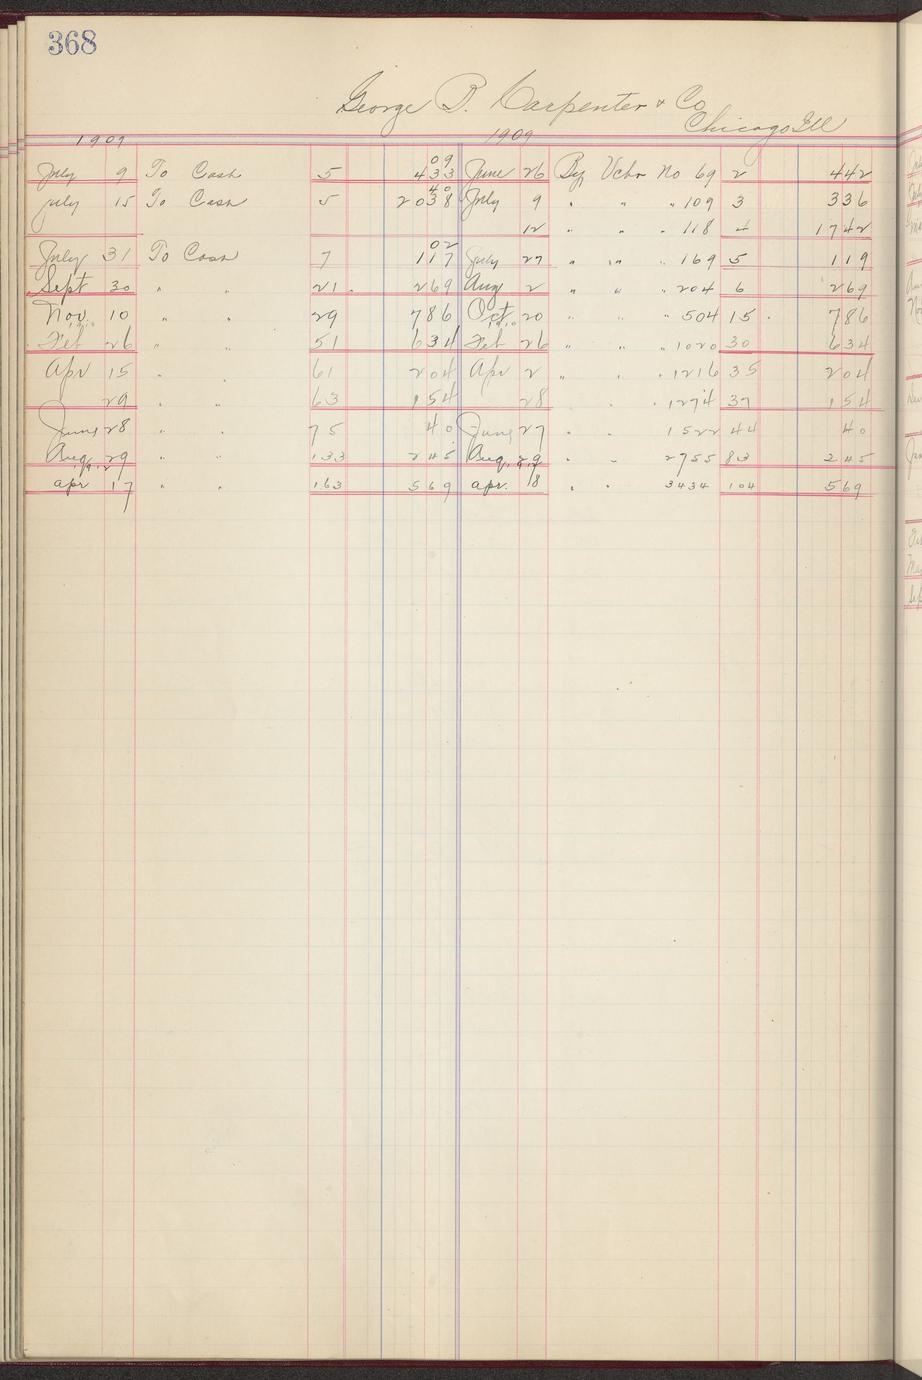 368
George B. Carpenter & Co
Chicago Ill
1909 1909
09
July 9 To Cash 5 433 June 26 By Vchr No 69 2 442
40
July 15 To Cash 5 2038 July 9 " " " 109 3 336
12 " " " 118 4 1742
02
July 31 To Cash 7 117 July 27 " " " 169 5 119
Sept 30 " " 21 269 Aug 2 " " " 204 6 269
Nov. 10 " " 29 786 Oct 20 " " " 504 15 786
1910 1910
Feb 26 " " 51 634 Feb 26 " " " 1020 30 634
Apr 15 " " 61 204 Apr 2 " " " 1216 35 204
29 " " 63 154 28 " " " 1274 37 154
June 28 " " 75 40 June 27 " " 1522 44 40
Aug. 29 " " 133 245 Aug. 29 " " 2755 83 245
1912 1912
apr 17 " " 163 569 apr. 18 " " 3434 104 569